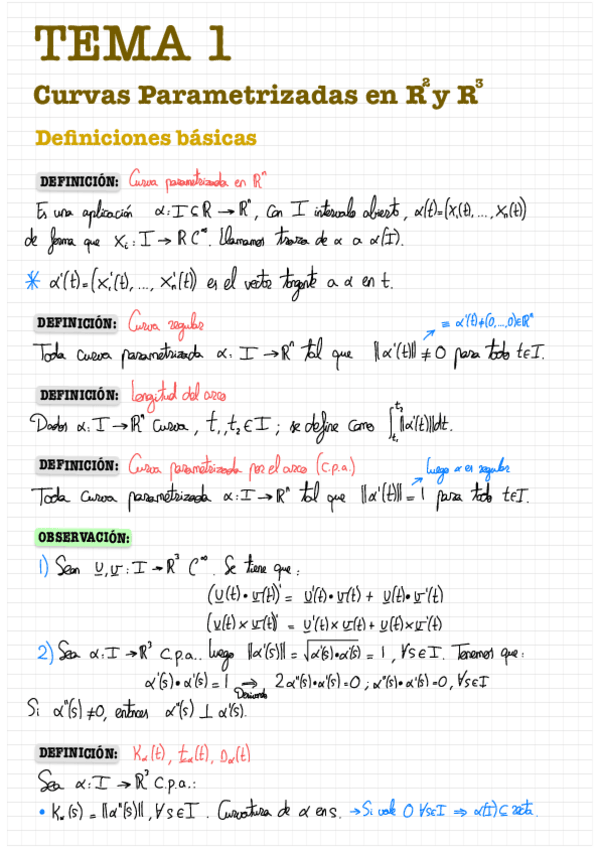 TEMA 1
Curvas Parametrizadas en R² y R³
Definiciones básicas
DEFINICIÓN: Curva parametrizada en Rⁿ
Es una aplicación α: I ⊆ R → Rⁿ, con I intervalo abierto, α(t)=(x₁(t), ..., xₙ(t))
de forma que xᵢ: I → R C^∞. Llamamos traza de α a α(I).
* α'(t)=(x₁'(t), ..., xₙ'(t)) es el vector tangente a α en t.
DEFINICIÓN: Curva regular
≡ α'(t)≠(0,...,0)∈Rⁿ
Toda curva parametrizada α: I → Rⁿ tal que ||α'(t)|| ≠ 0 para todo t∈I.
DEFINICIÓN: Longitud del arco
Dados α: I → Rⁿ curva, t₁, t₂ ∈ I; se define como ∫_{t₁}^{t₂} ||α'(t)||dt.
DEFINICIÓN: Curva parametrizada por el arco (c.p.a.) luego α es regular
Toda curva parametrizada α: I → Rⁿ tal que ||α'(t)|| = 1 para todo t∈I.
OBSERVACIÓN:
1) Sean u, v: I → R³ C^∞. Se tiene que:
(u(t)•v(t))' = u'(t)•v(t) + u(t)•v'(t)
(u(t)×v(t))' = u'(t)×v(t) + u(t)×v'(t)
2) Sea α: I → R³ c.p.a.. Luego ||α'(s)|| = √α'(s)•α'(s) = 1, ∀s∈I. Tenemos que:
α'(s)•α'(s) = 1 ⇒ 2α''(s)•α'(s)=0; α''(s)•α'(s)=0, ∀s∈I
Derivando
Si α''(s) ≠ 0, entonces α''(s) ⊥ α'(s).
DEFINICIÓN: Kα(t), tα(t), Dα(t)
Sea α: I → R³ c.p.a.:
• Kα(s) = ||α''(s)||, ∀s∈I. Curvatura de α en s. → Si vale 0 ∀s∈I ⇒ α(I) ⊆ recta.